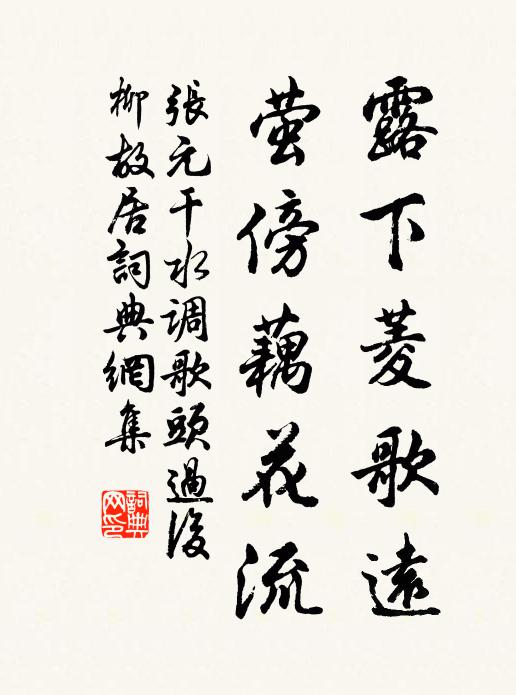 露下菱歌遠
萤傍藕花流
張元干水调歌頭過後
柳故居詞典網集
詞典网印